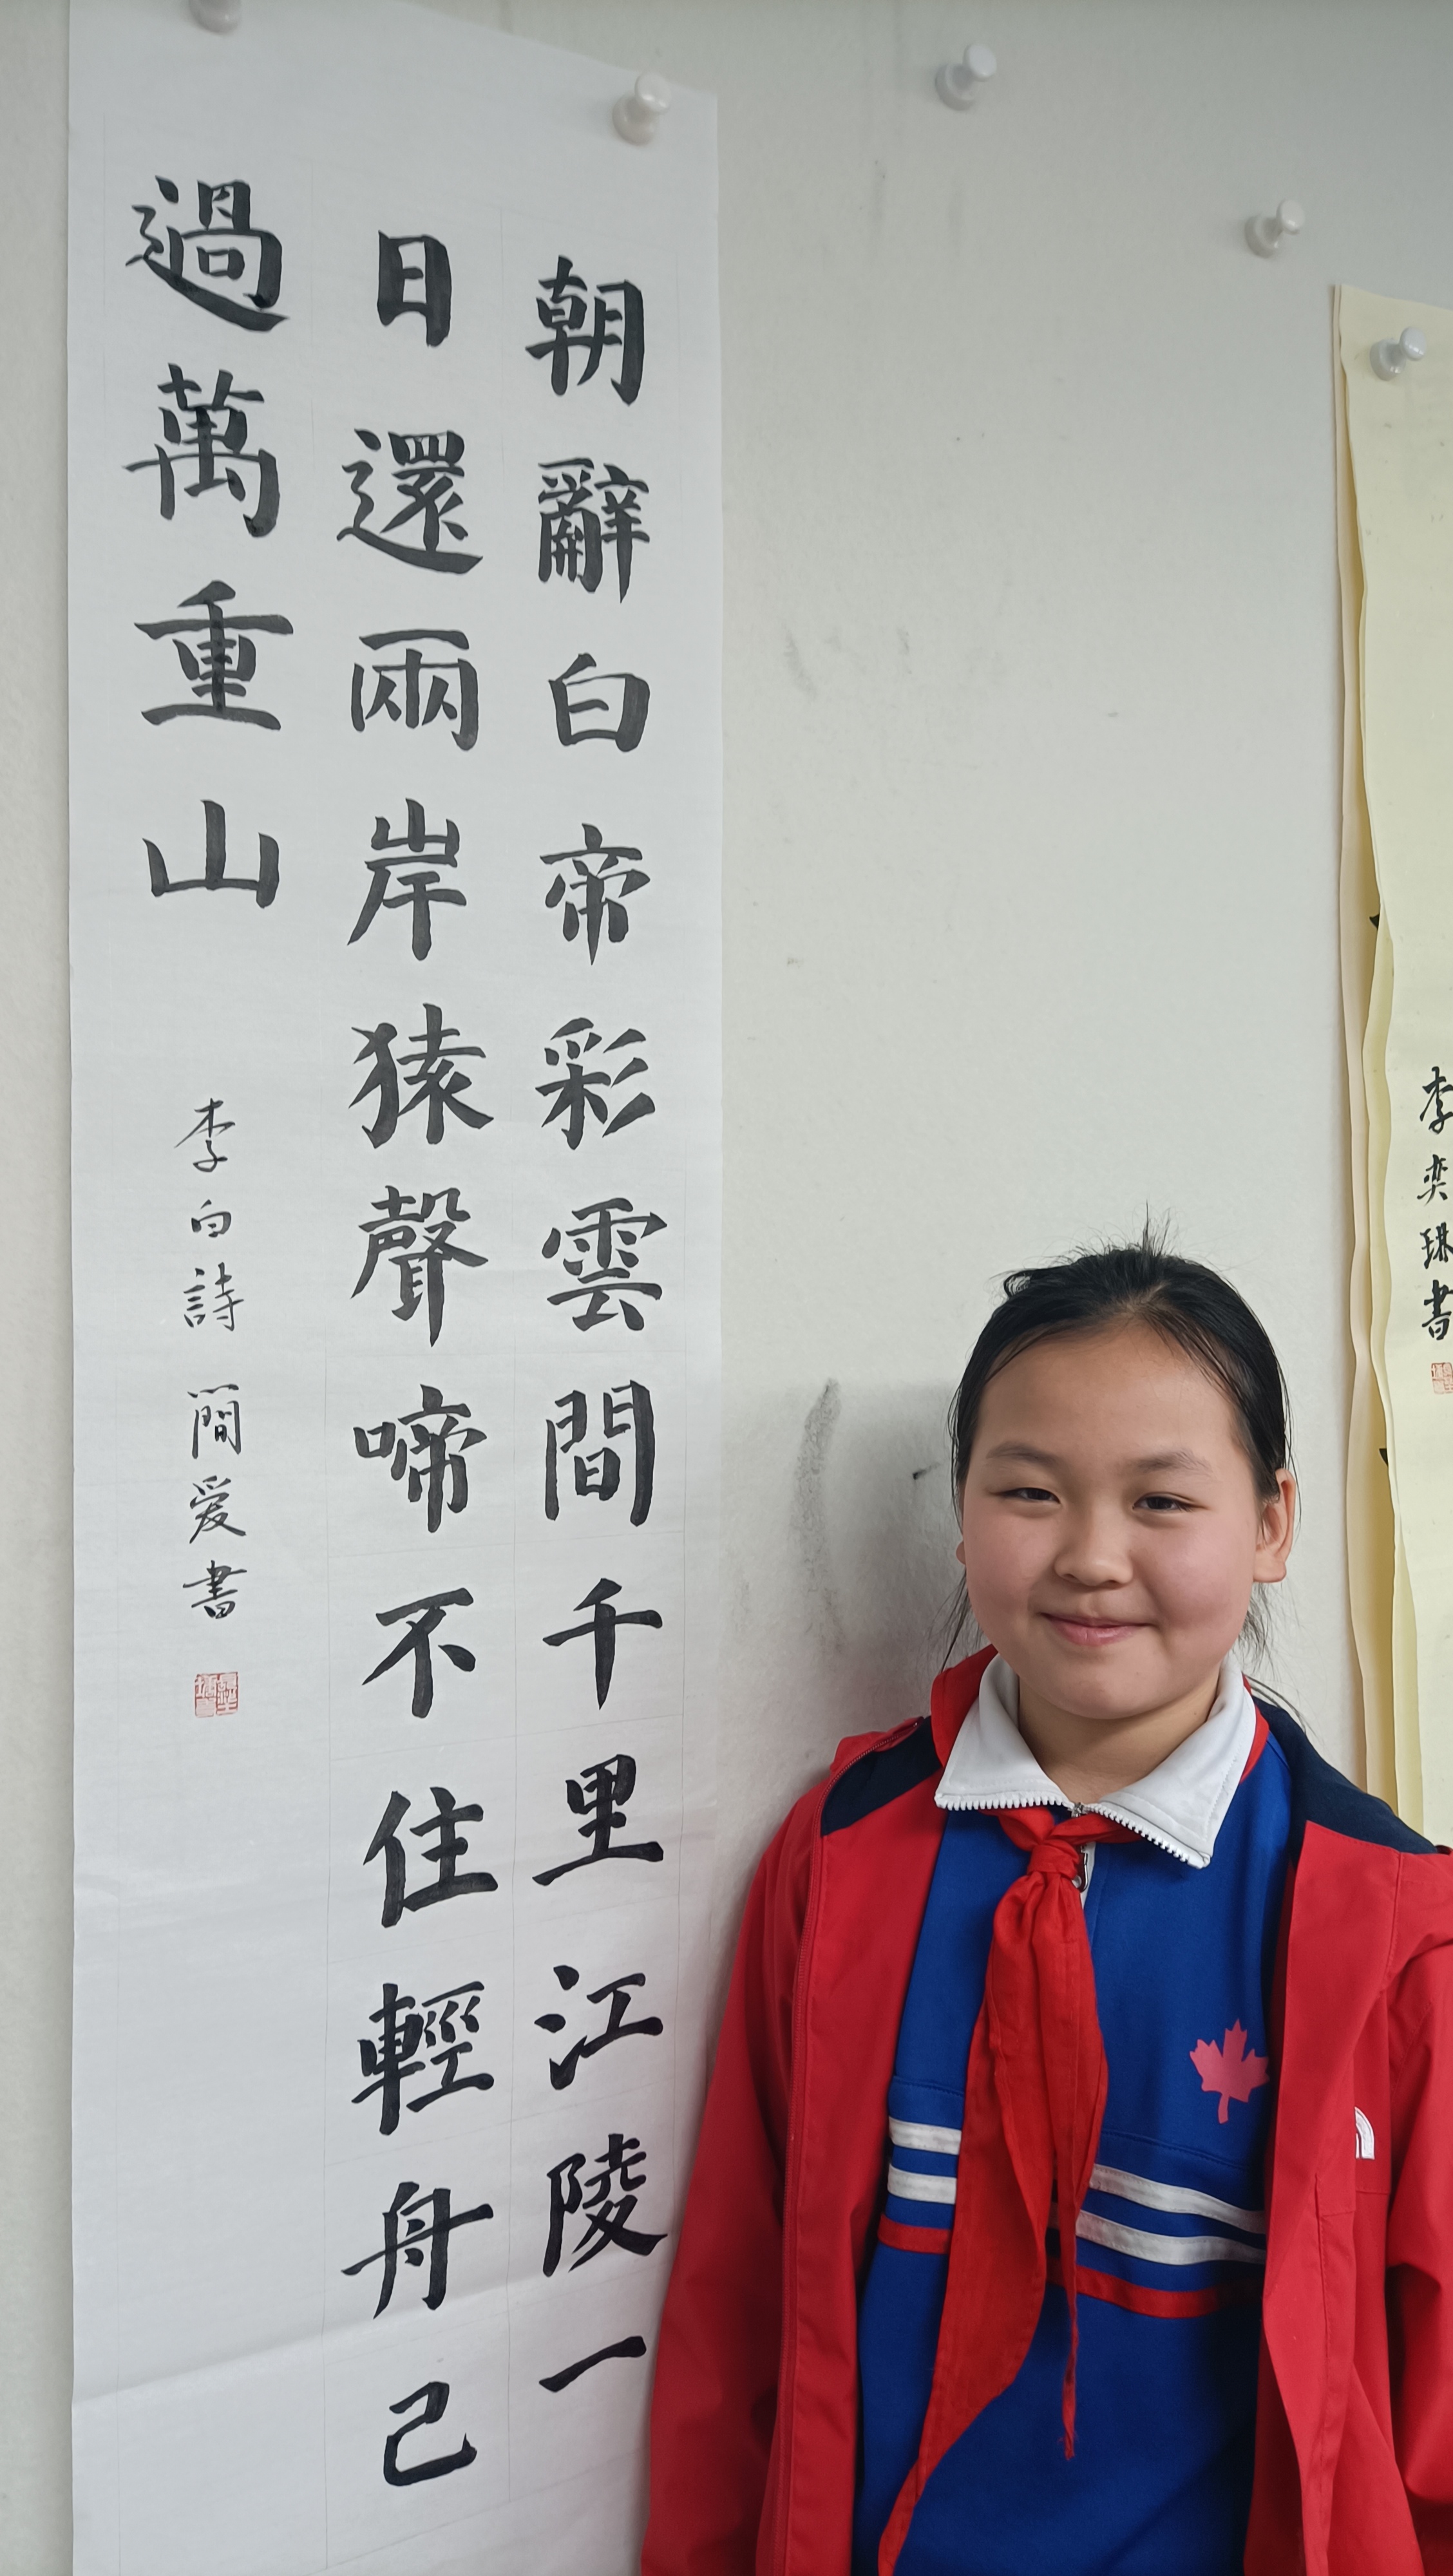 朝辭白帝彩雲間千里江陵一
日還兩岸猿聲啼不住輕舟己
過萬重山
李白詩 簡爱書
李奕琳書